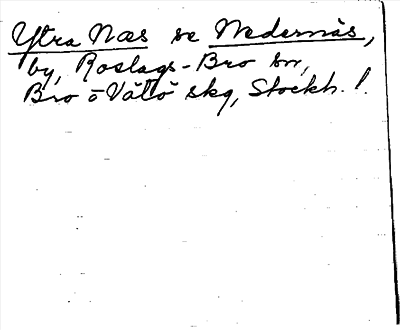 Ytra Næs se Nedernäs,
by, Roslags-Bro sn,
Bro o Vätö skg, Stockh. l.